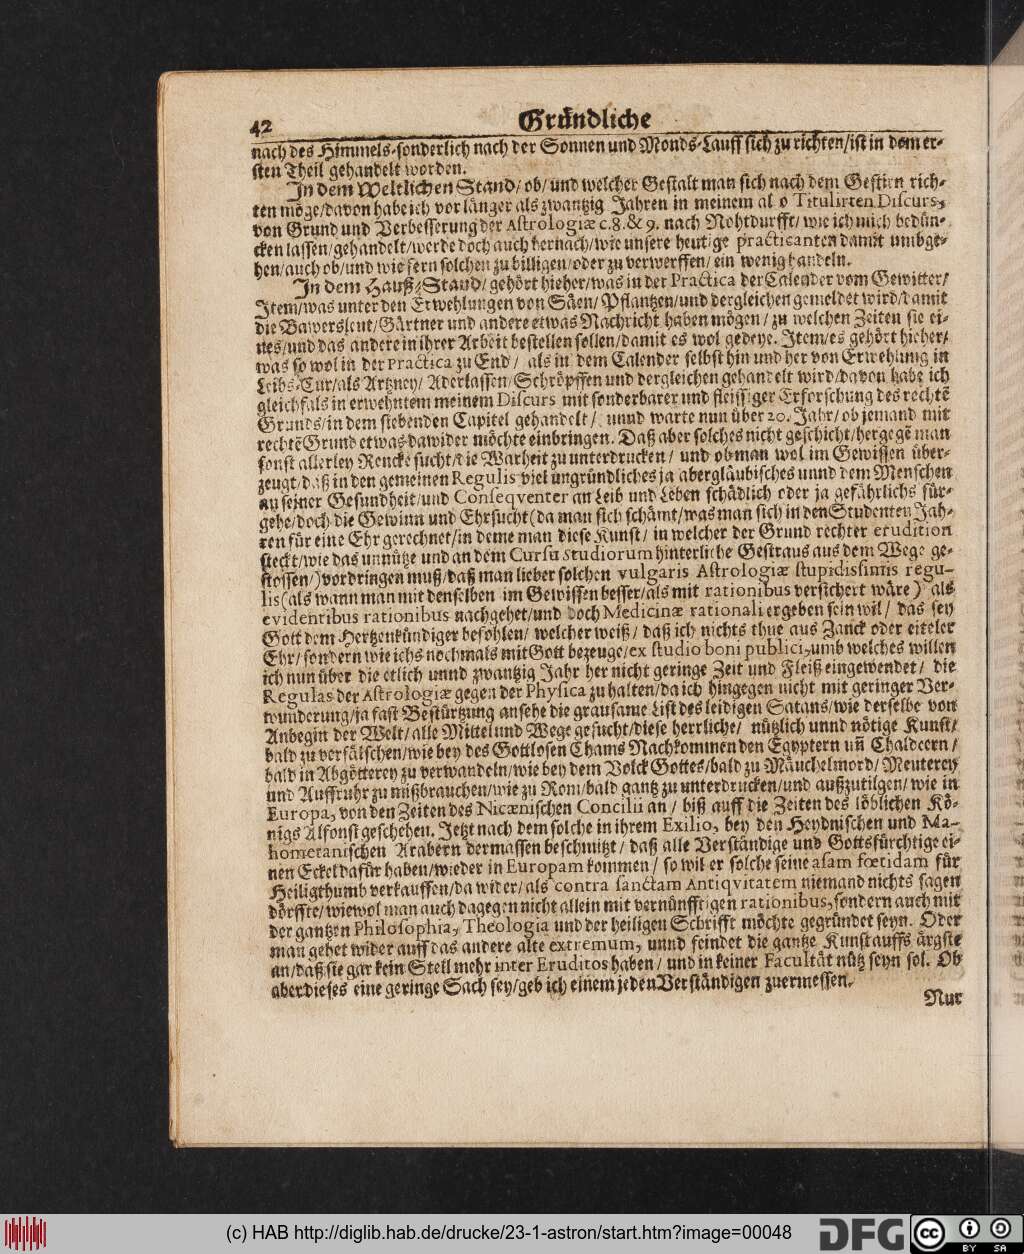 42 Gründliche
nach des Himmels-sonderlich nach der Sonnen und Monds-Lauff sich zu richten/ist in dem er-
sten Theil gehandelt worden.
In dem Weltlichen Stand/ ob/ und welcher Gestalt man sich nach dem Gestirn rich-
ten möge/davon habe ich vor länger als zwantzig Jahren in meinem also Titulirten Discurs,
von Grund und Verbesserung der Astrologiæ c.8.& 9. nach Nohtdurfft/ wie ich mich bedün-
cken lassen/gehandelt/werde doch auch hernach/wie unsere heutige practicanten damit umbge-
hen/auch ob/und wie fern solchen zu billigen/oder zu verwerffen/ ein wenig handeln.
In dem Hauß-Stand/ gehört hieher/was in der Practica der Calender vom Gewitter/
Item/was unter den Erwehlungen von Säen/Pflantzen/und dergleichen gemeldet wird/damit
die Bawersleut/Gärtner und andere etwas Nachricht haben mögen/ zu welchen Zeiten sie ei-
nes/und das andere in ihrer Arbeit bestellen sollen/damit es wol gedeye. Item/es gehört hieher/
was so wol in der Practica zu End/ als in dem Calender selbst hin und her von Erwehlung in
Leibs-Cur/als Artzney/ Aderlassen/Schröpffen und dergleichen gehandelt wird/davon habe ich
gleichfals in erwehntem meinem Discurs mit sonderbarer und fleissiger Erforschung des rechtē
Grunds/in dem siebenden Capitel gehandelt/ unnd warte nun über 20. Jahr/ ob jemand mit
rechtē Grund etwas dawider möchte einbringen. Daß aber solches nicht geschicht/hergegē man
sonst allerley Rencke sucht/die Warheit zu unterdrucken/ und ob man wol im Gewissen über-
zeugt/daß in den gemeinen Regulis viel ungründliches ja abergläubisches unnd dem Menschen
an seiner Gesundheit/und Conseqventer an Leib und Leben schädlich oder ja gefährlichs für-
gehe/doch die Gewinn und Ehrsucht (da man sich schämt/was man sich in den Studenten Jah-
ren für eine Ehr gerechnet/in deme man diese Kunst/ in welcher der Grund rechter erudition
steckt/wie das unnütze und an dem Cursu studiorum hinterliche Gestraus aus dem Wege ge-
stossen/) vordringen muß/daß man lieber solchen vulgaris Astrologiæ stupidissimis regu-
lis (als wann man mit denselben im Gewissen besser/als mit rationibus versichert wäre) als
evidentibus rationibus nachgehet/und doch Medicinæ rationali ergeben sein wil/ das sey
Gott dem Hertzenkündiger befohlen/ welcher weiß/ daß ich nichts thue aus Zanck oder eiteler
Ehr/sondern wie ichs nochmals mit Gott bezeuge/ex studio boni publici, umb welches willen
ich nun über die etlich unnd zwantzig Jahr her nicht geringe Zeit und Fleiß eingewendet/ die
Regulas der Astrologiæ gegen der Physica zu halten/da ich hingegen nicht mit geringer Ver-
wunderung/ja fast Bestürtzung ansehe die grausame List des leidigen Satans/wie derselbe von
Anbegin der Welt/alle Mittel und Wege gesucht/diese herrliche/ nützlich unnd nötige Kunst/
bald zu verfälschen/wie bey des Gottlosen Chams Nachkommen den Egyptern uñ Chaldeern/
bald in Abgötterey zu verwandeln/wie bey dem Volck Gottes/bald zu Mäuchelmord/ Meuterey
und Auffruhr zu mißbrauchen/wie zu Rom/bald gantz zu unterdrucken/und außzutilgen/ wie in
Europa, von den Zeiten des Nicænischen Concilii an/ biß auff die Zeiten des löblichen Kö-
nigs Alfonsi geschehen. Jetzt nach dem solche in ihrem Exilio, bey den Heydnischen und Ma-
hometanischen Arabern dermassen beschmitzt/ daß alle Verständige und Gottsfürchtige ei-
nen Eckel dafür haben/wieder in Europam kommen/ so wil er solche seine asam fœtidam für
Heiligthumb verkauffen/da wider/als contra sanctam Antiqvitatem niemand nichts sagen
dörffte/wiewol man auch dagegen nicht allein mit vernünfftigen rationibus, sondern auch mit
der gantzen Philosophia, Theologia und der heiligen Schrifft möchte gegründet seyn. Oder
man gehet wider auff das andere alte extremum, unnd feindet die gantze Kunst auffs ärgste
an/daß sie gar kein Stell mehr inter Eruditos haben/ und in keiner Facultät nütz seyn sol. Ob
aber dieses eine geringe Sach sey/geb ich einem jeden Verständigen zuermessen.
Nur
(c) HAB http://diglib.hab.de/drucke/23-1-astron/start.htm?image=00048 DFG cc BY SA